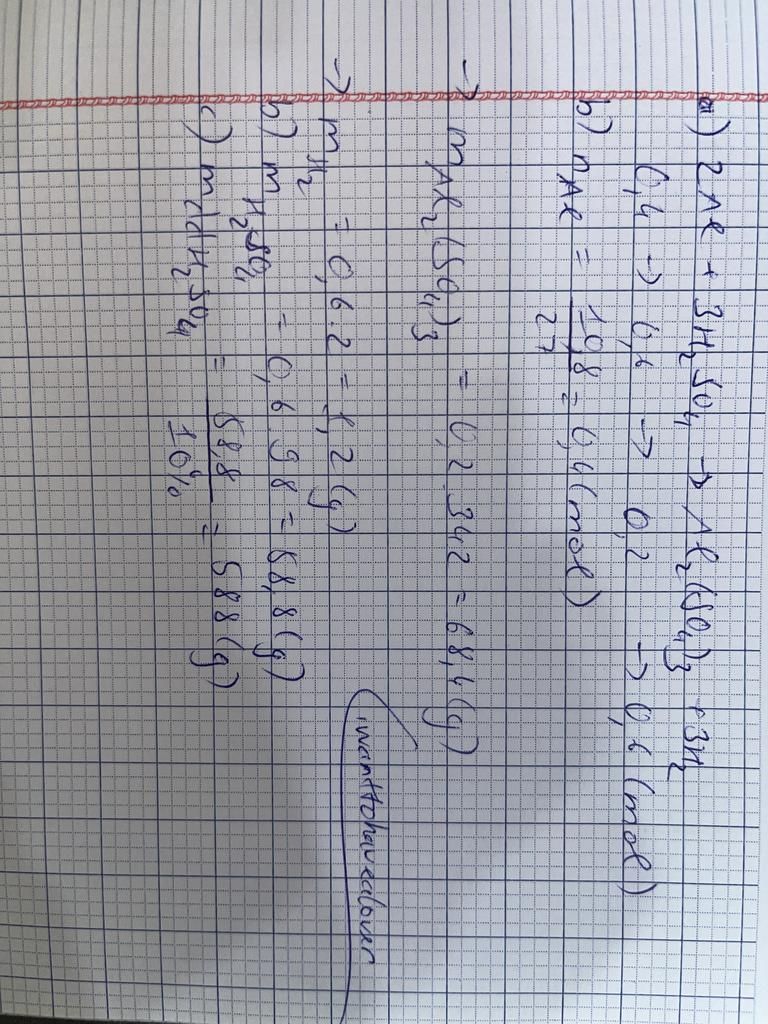 a) 2Al + 3H₂SO₄ → Al₂(SO₄)₃ + 3H₂
0,4 → 0,6 → 0,2 → 0,6 (mol)
b) nAl = 10,8/27 = 0,4 (mol)
→ mAl₂(SO₄)₃ = 0,2.342 = 68,4 (g)
→ mH₂ = 0,6.2 = 1,2 (g)
b) mH₂SO₄ = 0,6.98 = 58,8 (g)
c) mddH₂SO₄ = 58,8/10% = 588 (g)
iwanttohavealover